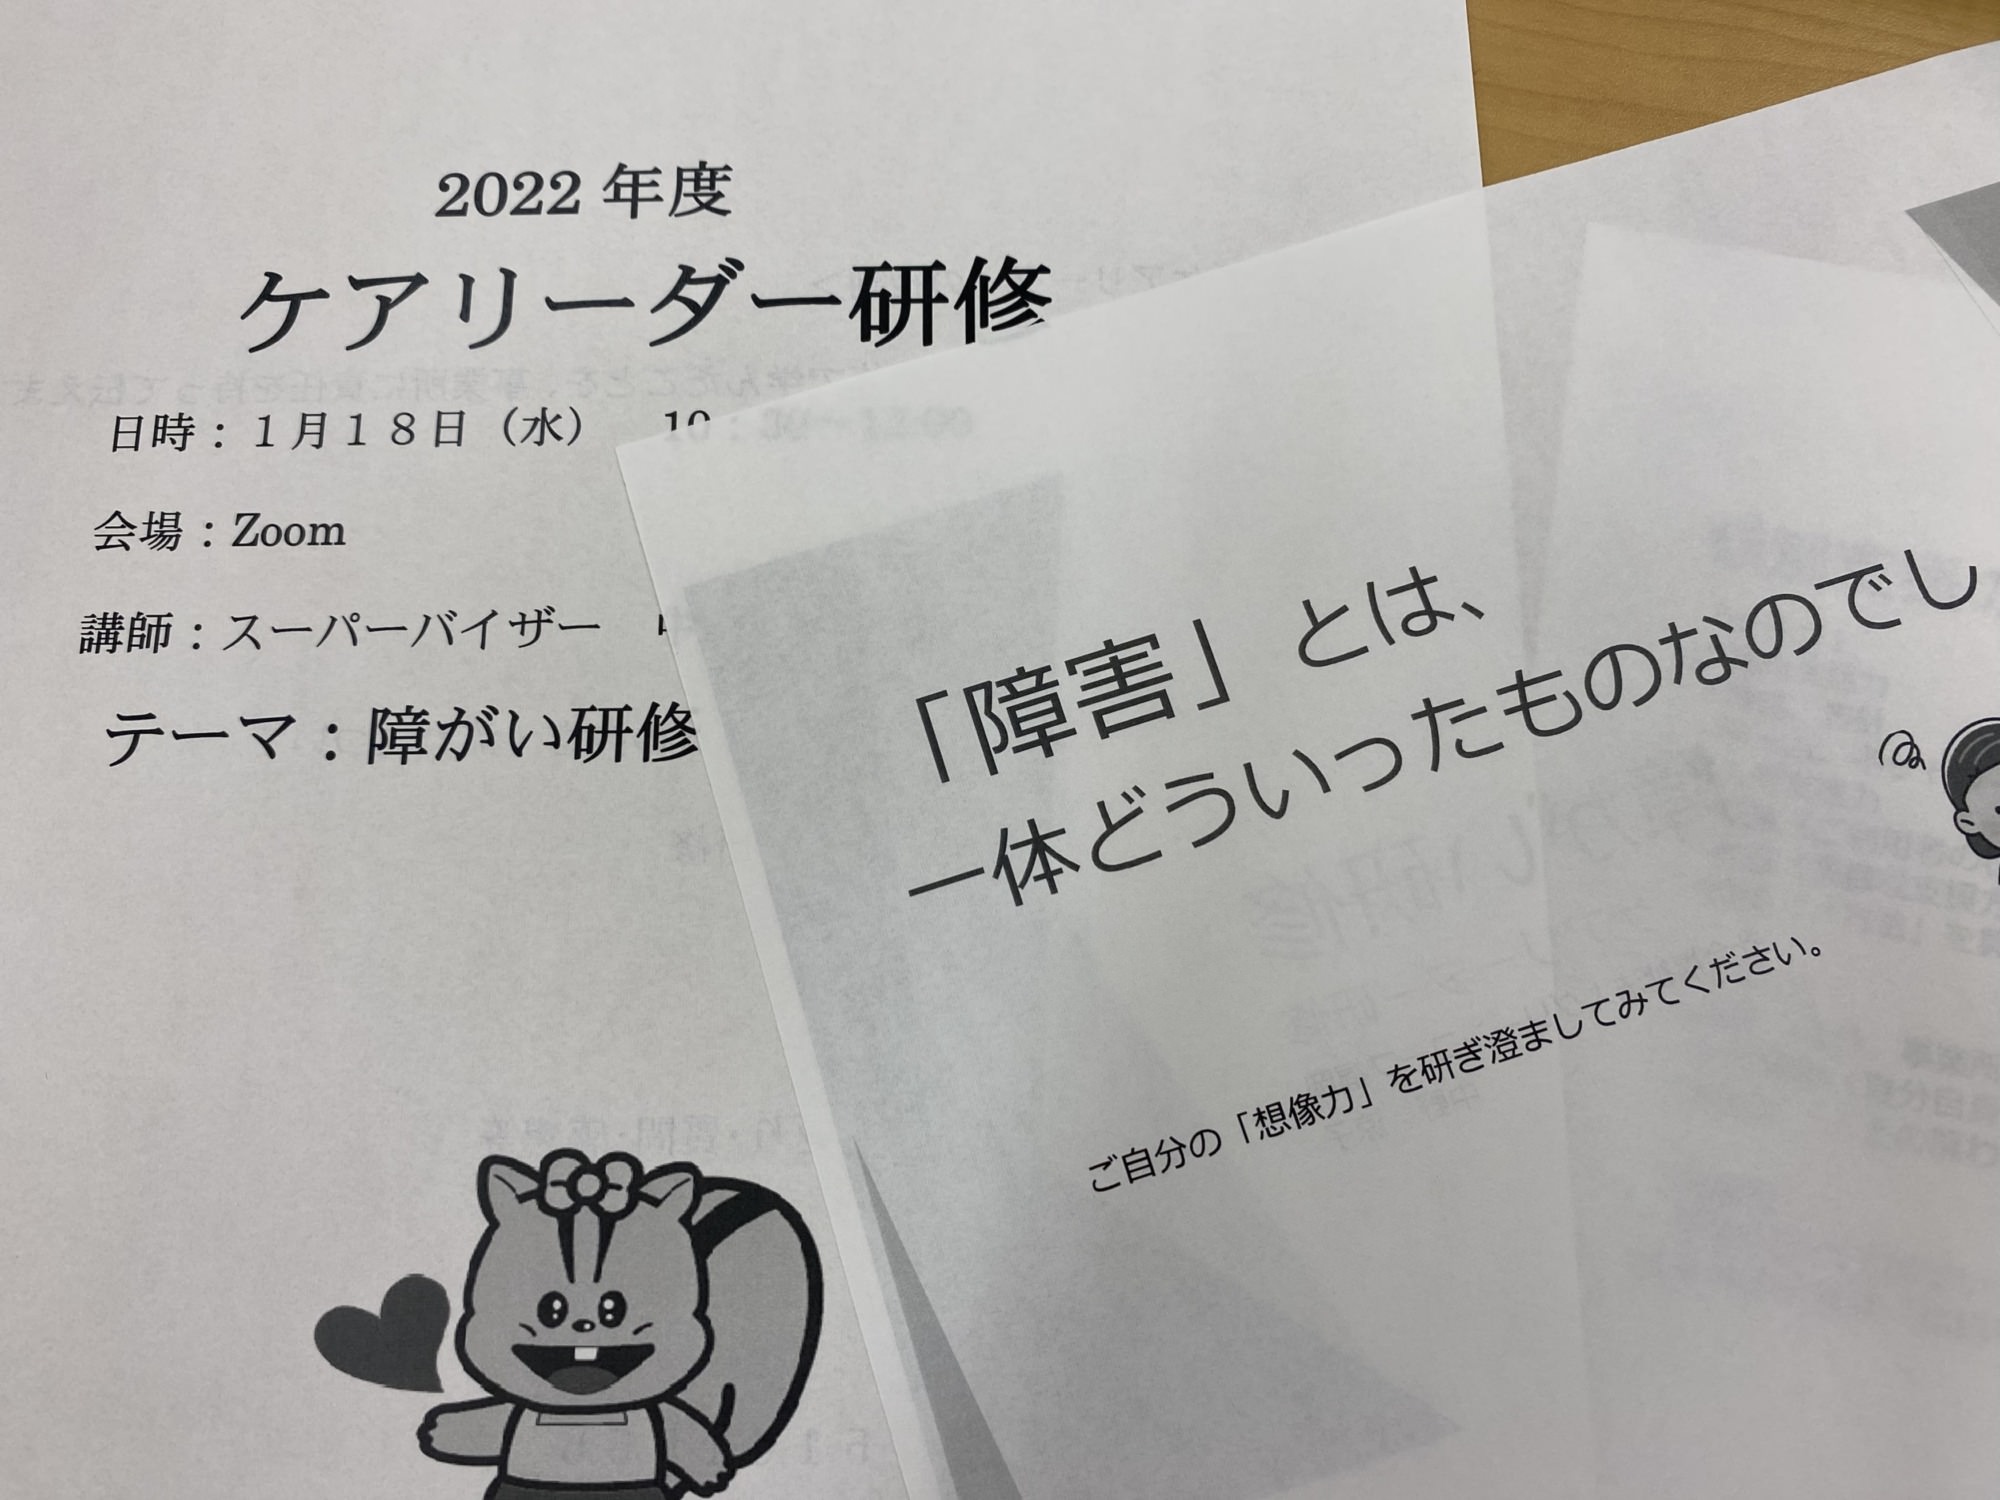 2022 年度
ケアリーダー研修
日時：１月１８日（水）　10
会場：Zoom
講師：スーパーバイザー
テーマ：障がい研修
「障害」とは、
一体どういったものなのでし
ご自分の「想像力」を研ぎ澄ましてみてください。